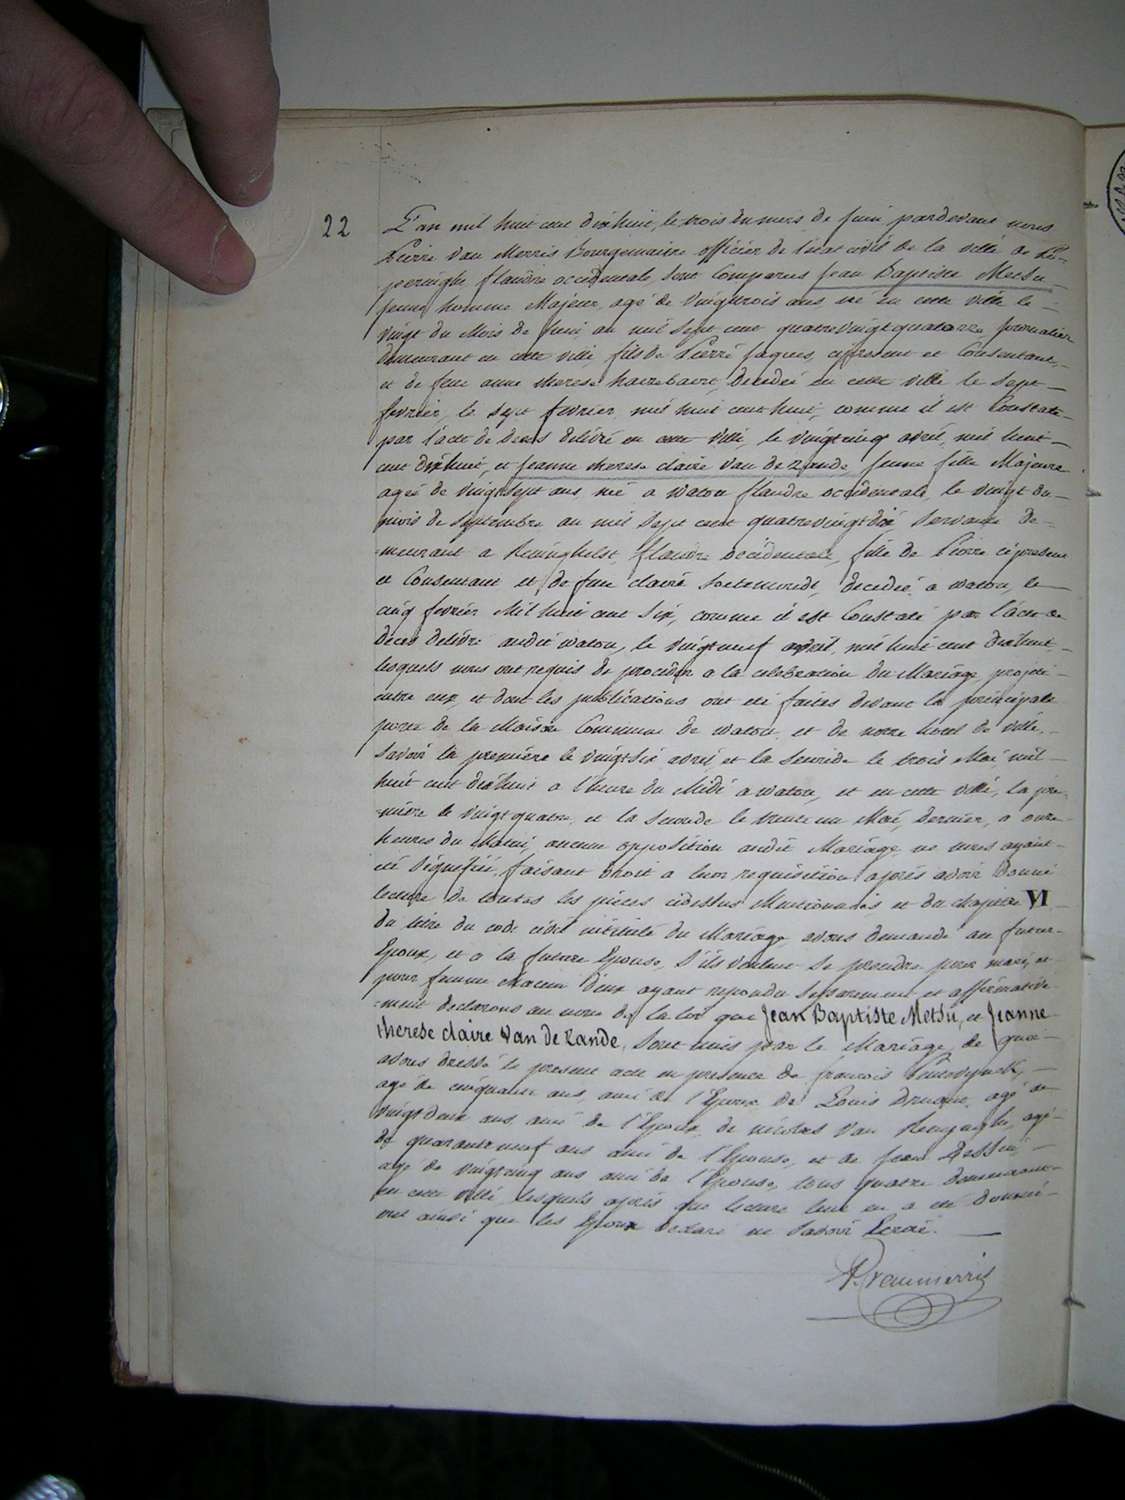 22
L'an mil huit cent dixhuit, le trois du mois de Juin pardevant nous
Pierre Van Merris Bourguemaitre officier de l'etat civil de la ville de Po-
peringhe flandre occidentale, sont comparus Jean Baptiste Metsu
jeune homme Majeur, agé de vingttrois ans, né en cette ville le
vingt du Mois de Juin an mil sept cent quatrevingtquatorze journalier
demeurant en cette ville, fils de Pierre Jaques, cipresent et Consentant,
et de feue anne therese decedée en cette ville le sept
fevrier, le sept fevrier mil huit cent huit, comme il est Constaté
par l'acte de deces delivré en cette ville, le vingtcinq avril, mil huit
cent dixhuit, et Jeanne therese claire Van de Zande, jeune fille Majeure
agée de vingtsept ans, née a watou flandre occidentale, le vingt du
mois de Septembre an mil sept cent quatrevingtdix servante de-
meurant a Reninghelst, flandre occidentale, fille de Pierre cipresent
et Consentant et de feue claire decedée a watou, le
cinq fevrier Mil huit cent six, comme il est Constaté par l'acte de
deces delivré audit watou, le vingtneuf avril, mil huit cent dixhuit
lesquels nous ont requis de proceder a la celebration du Mariage projeté
entre eux, et dont les publications ont eté faites devant la principale
porte de la Maison Commune de watou et de notre hotel de ville,
Savoir la premiere le vingtsix avril et la seconde le trois Mai mil
huit cent dixhuit a l'heure du Midi a watou, et en cette ville, la pre-
miere le vingtquatre, et la seconde le trente un Mai, dernier, a onze
heures du Matin, aucune opposition audit Mariage ne nous ayant
eté signifiée, faisant droit a leur requisition, après avoir donné
lecture de toutes les pieces cidessus Mentionnées et du chapitre VI
du titre du code civil intitulé du Mariage avons demandé au futur
Epoux, et a la future Epouse, s'ils veulent se prendre pour mari et
pour femme chacun d'eux ayant repondu separement et affirmative-
ment declarons au nom de la loi que Jean Baptiste Metsu, et Jeanne
therese claire Van de Zande, sont unis par le Mariage, de quoi
avons dressé le present acte en presence de françois
agé de cinquante ans, ami de l'Epoux de Louis agé de
vingtdeux ans, ami de l'Epoux, de nicolas Van Renynghe, agé
de quaranteneuf ans ami de l'Epouse, et de Jean
agé de vingtcinq ans ami de l'Epouse, tous quatre demeurant
en cette ville lesquels après que lecture leur en a eté donnée
ont ainsi que les Epoux declaré ne savoir Ecrire.
P. vanmerris